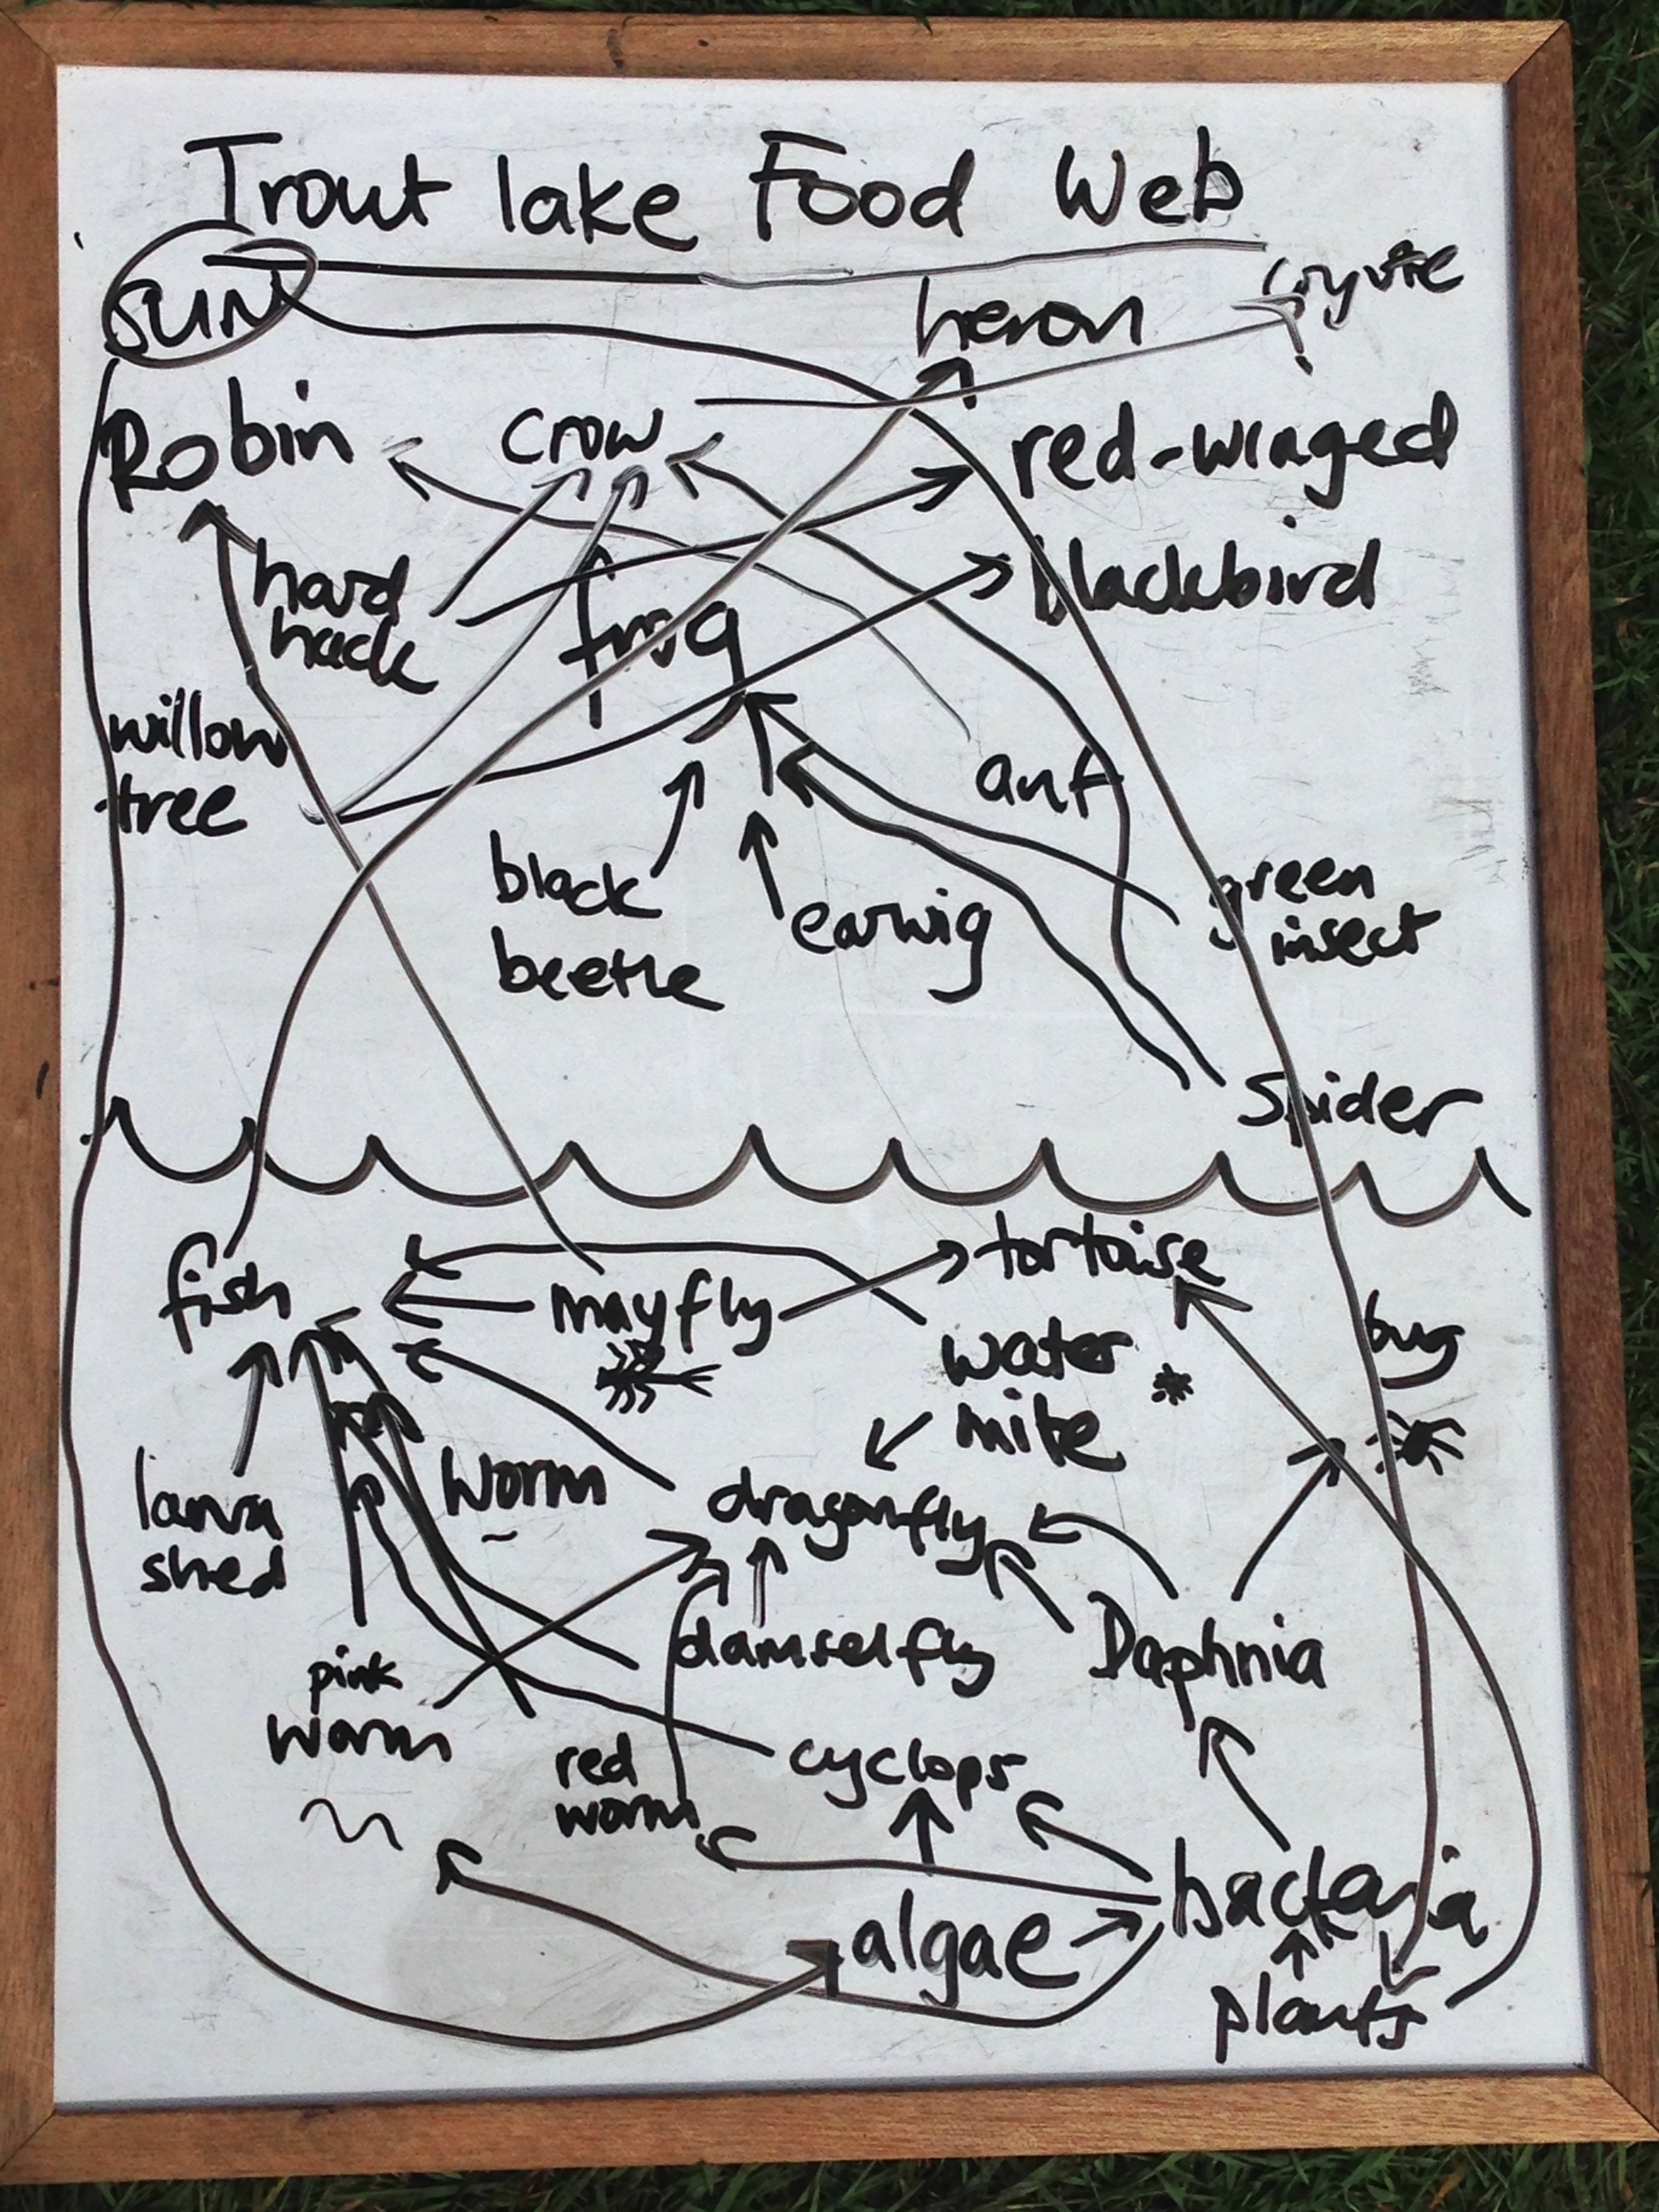 Trout lake Food Web
SUN
heron
Robin
crow
red-winged
blackbird
hard
hack
frog
willow
tree
ant
black
beetle
earwig
green
insect
Spider
fish
mayfly
tortoise
water
mite
bug
larva
shed
worm
dragonfly
damselfly
Daphnia
pink
worm
red
worm
cyclops
bacteria
algae
plants